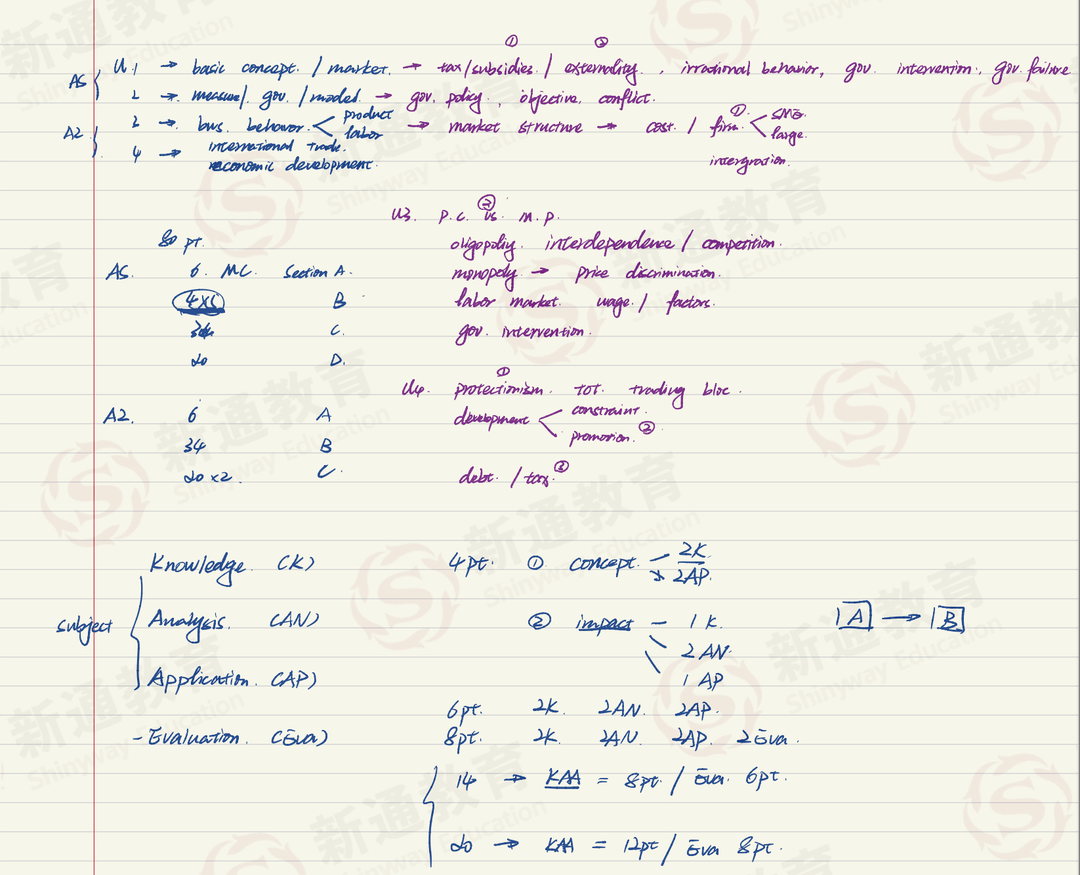 ① ②
AS { U.1 → basic concept. / market. → tax/subsidies / externality, irrational behavior, gov. intervention, gov failure
2 → measure/. gov. / model → gov. policy, objective, conflict.
A2. 2 → bus. behavor. < product labor → market structure → cost / firm ① < SME large.
4 → international trade. economic development. intergration.
U3. P.C. ② vs. M.P.
80 pt. oligopoliy. interdependence / competition.
AS. 6. MC. Section A. monopoly → price discrimination.
4x5 B labor market. wage / factors.
34 C. gov. intervention.
20 D.
①
U4. protectionism. TOT. trading bloc.
A2. 6 A development < constraint.
34 B promotion. ②
20 x2. C. debt. / tax. ③
Knowledge. (K) 4pt. ① concept. 2K. 2AP.
subject { Analysis. (AN) ② impact — 1 K. |A → |B
2 AN.
Application. (AP) 1 AP
6pt. 2K. 2AN. 2AP.
- Evaluation. (Eva) 8pt. 2K. 2AN. 2AP. 2Eva.
14 → KAA = 8pt. / Eva. 6pt.
20 → KAA = 12pt / Eva 8pt.
新通教育
Shinyway Education